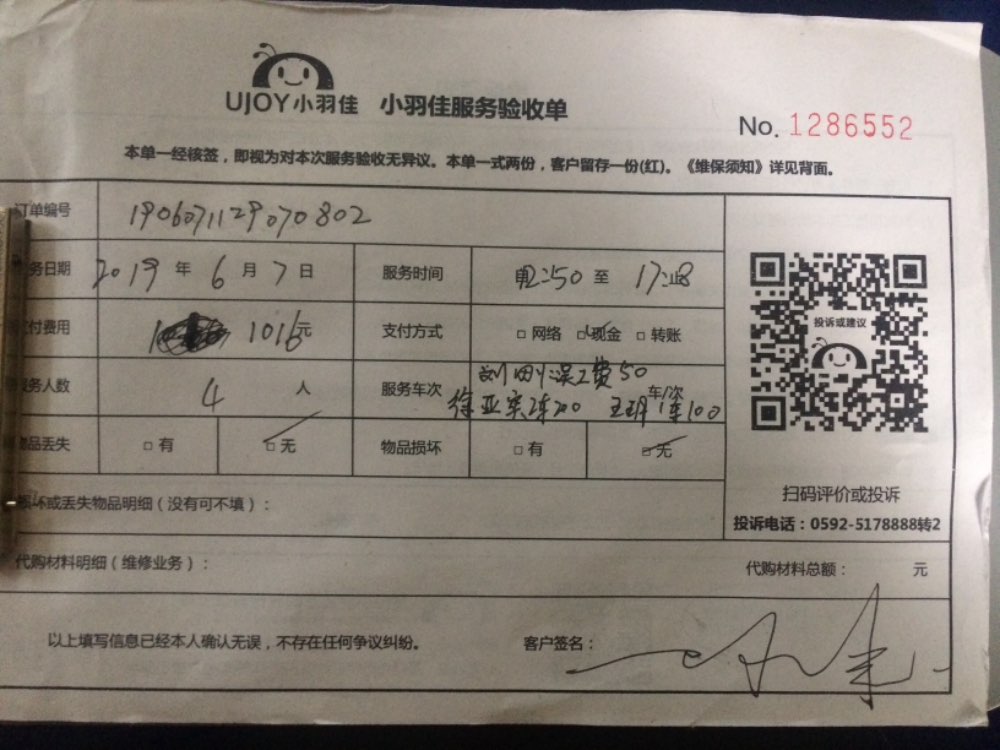 UJOY小羽佳 小羽佳服务验收单
No. 1286552
本单一经核签，即视为对本次服务验收无异议。本单一式两份，客户留存一份(红)。《维保须知》详见背面。
订单编号 1906071129070802
务日期 2019 年 6 月 7 日 服务时间 12:50 至 17:
付费用 1016元 支付方式 □ 网络 □现金 □ 转账
务人数 4 人 服务车次 误工费50 车/次
徐亚 100
物品丢失 □ 有 □ 无 物品损坏 □ 有 □ 无
损坏或丢失物品明细（没有可不填）：
投诉或建议
扫码评价或投诉
投诉电话：0592-5178888转2
代购材料明细（维修业务）： 代购材料总额： 元
以上填写信息已经本人确认无误，不存在任何争议纠纷。 客户签名：